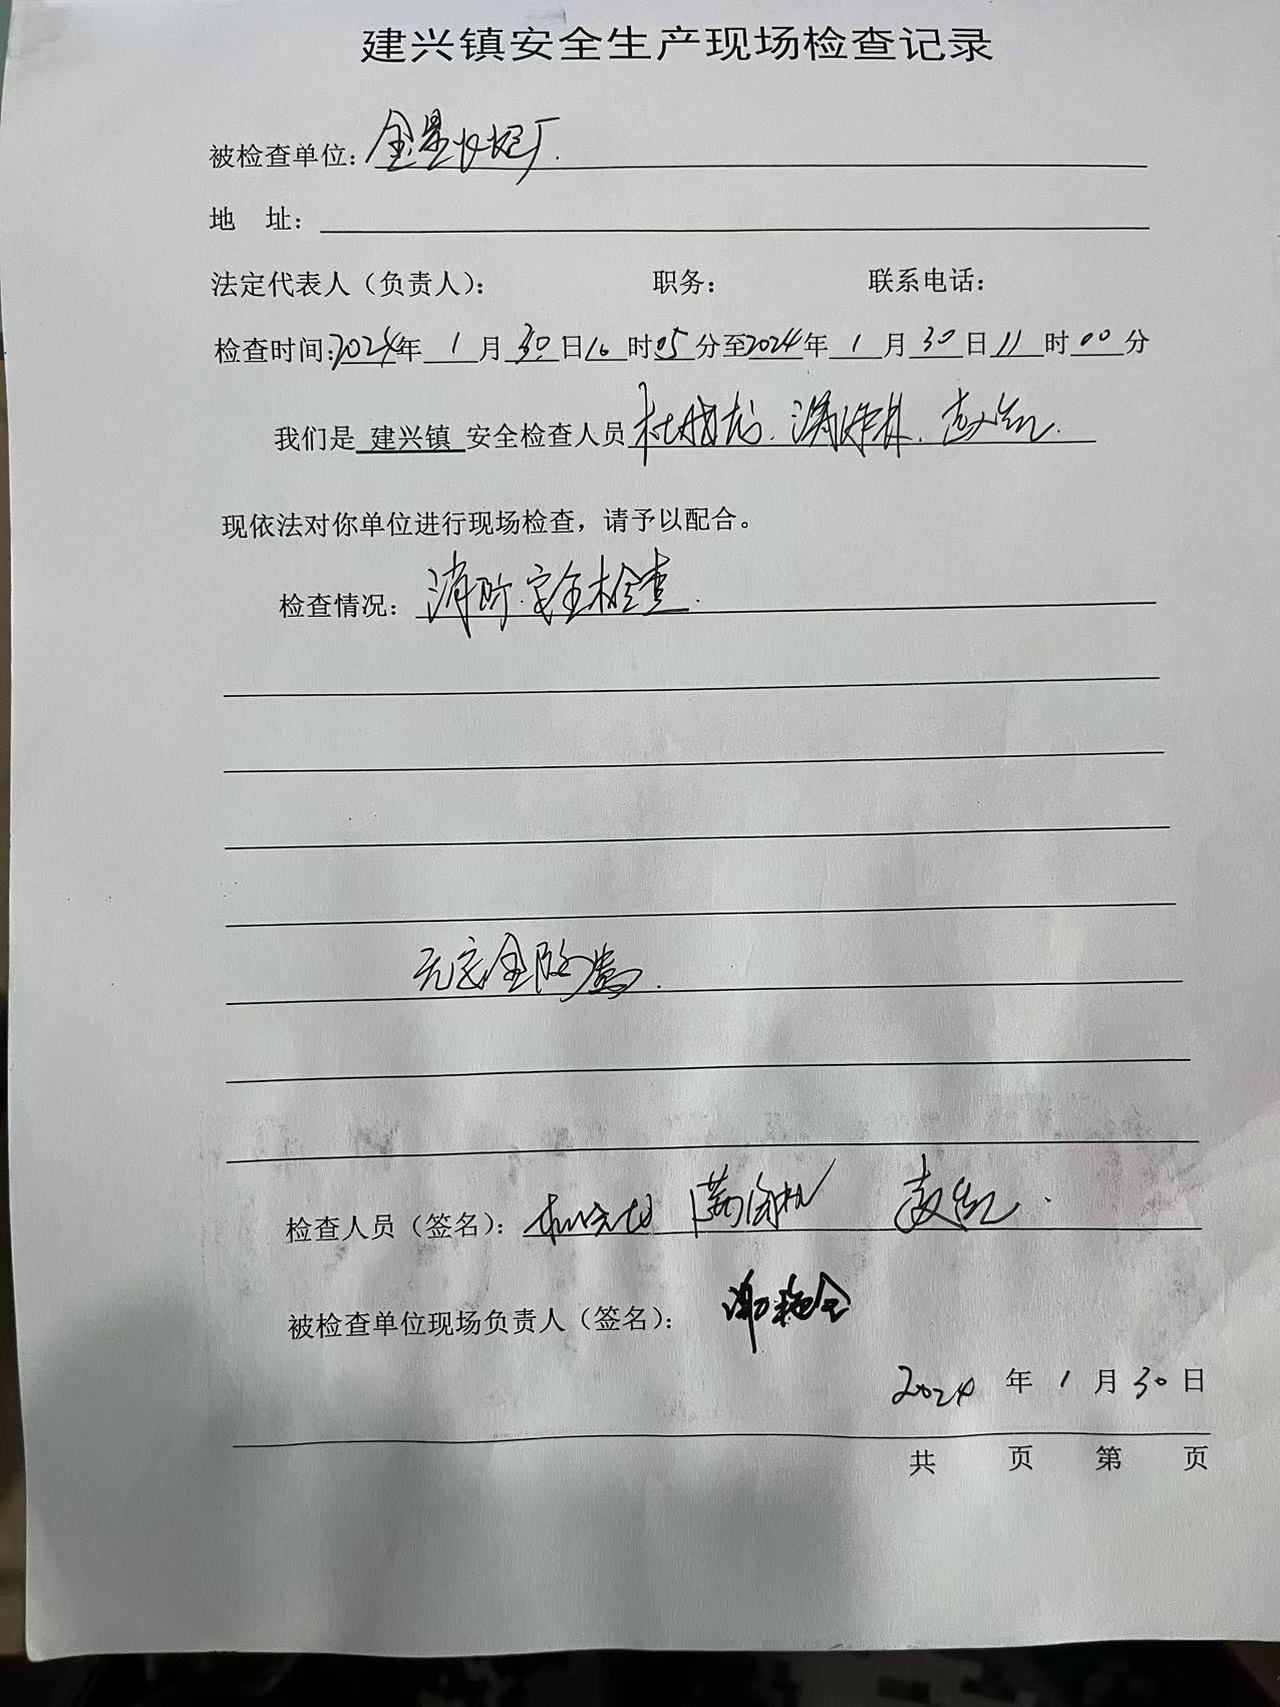 建兴镇安全生产现场检查记录
被检查单位：金星化妃厂.
地 址：
法定代表人（负责人）： 职务： 联系电话：
检查时间：2024年 1 月 30 日 10 时 05 分至 2024 年 1 月 30 日 11 时 00 分
我们是 建兴镇 安全检查人员 杜 . 满 林 . 赵红.
现依法对你单位进行现场检查，请予以配合。
检查情况：消防.安全检查.
无安全隐患.
检查人员（签名）： 满 赵红.
被检查单位现场负责人（签名）：谢 金
2024 年 1 月 30 日
共 页 第 页